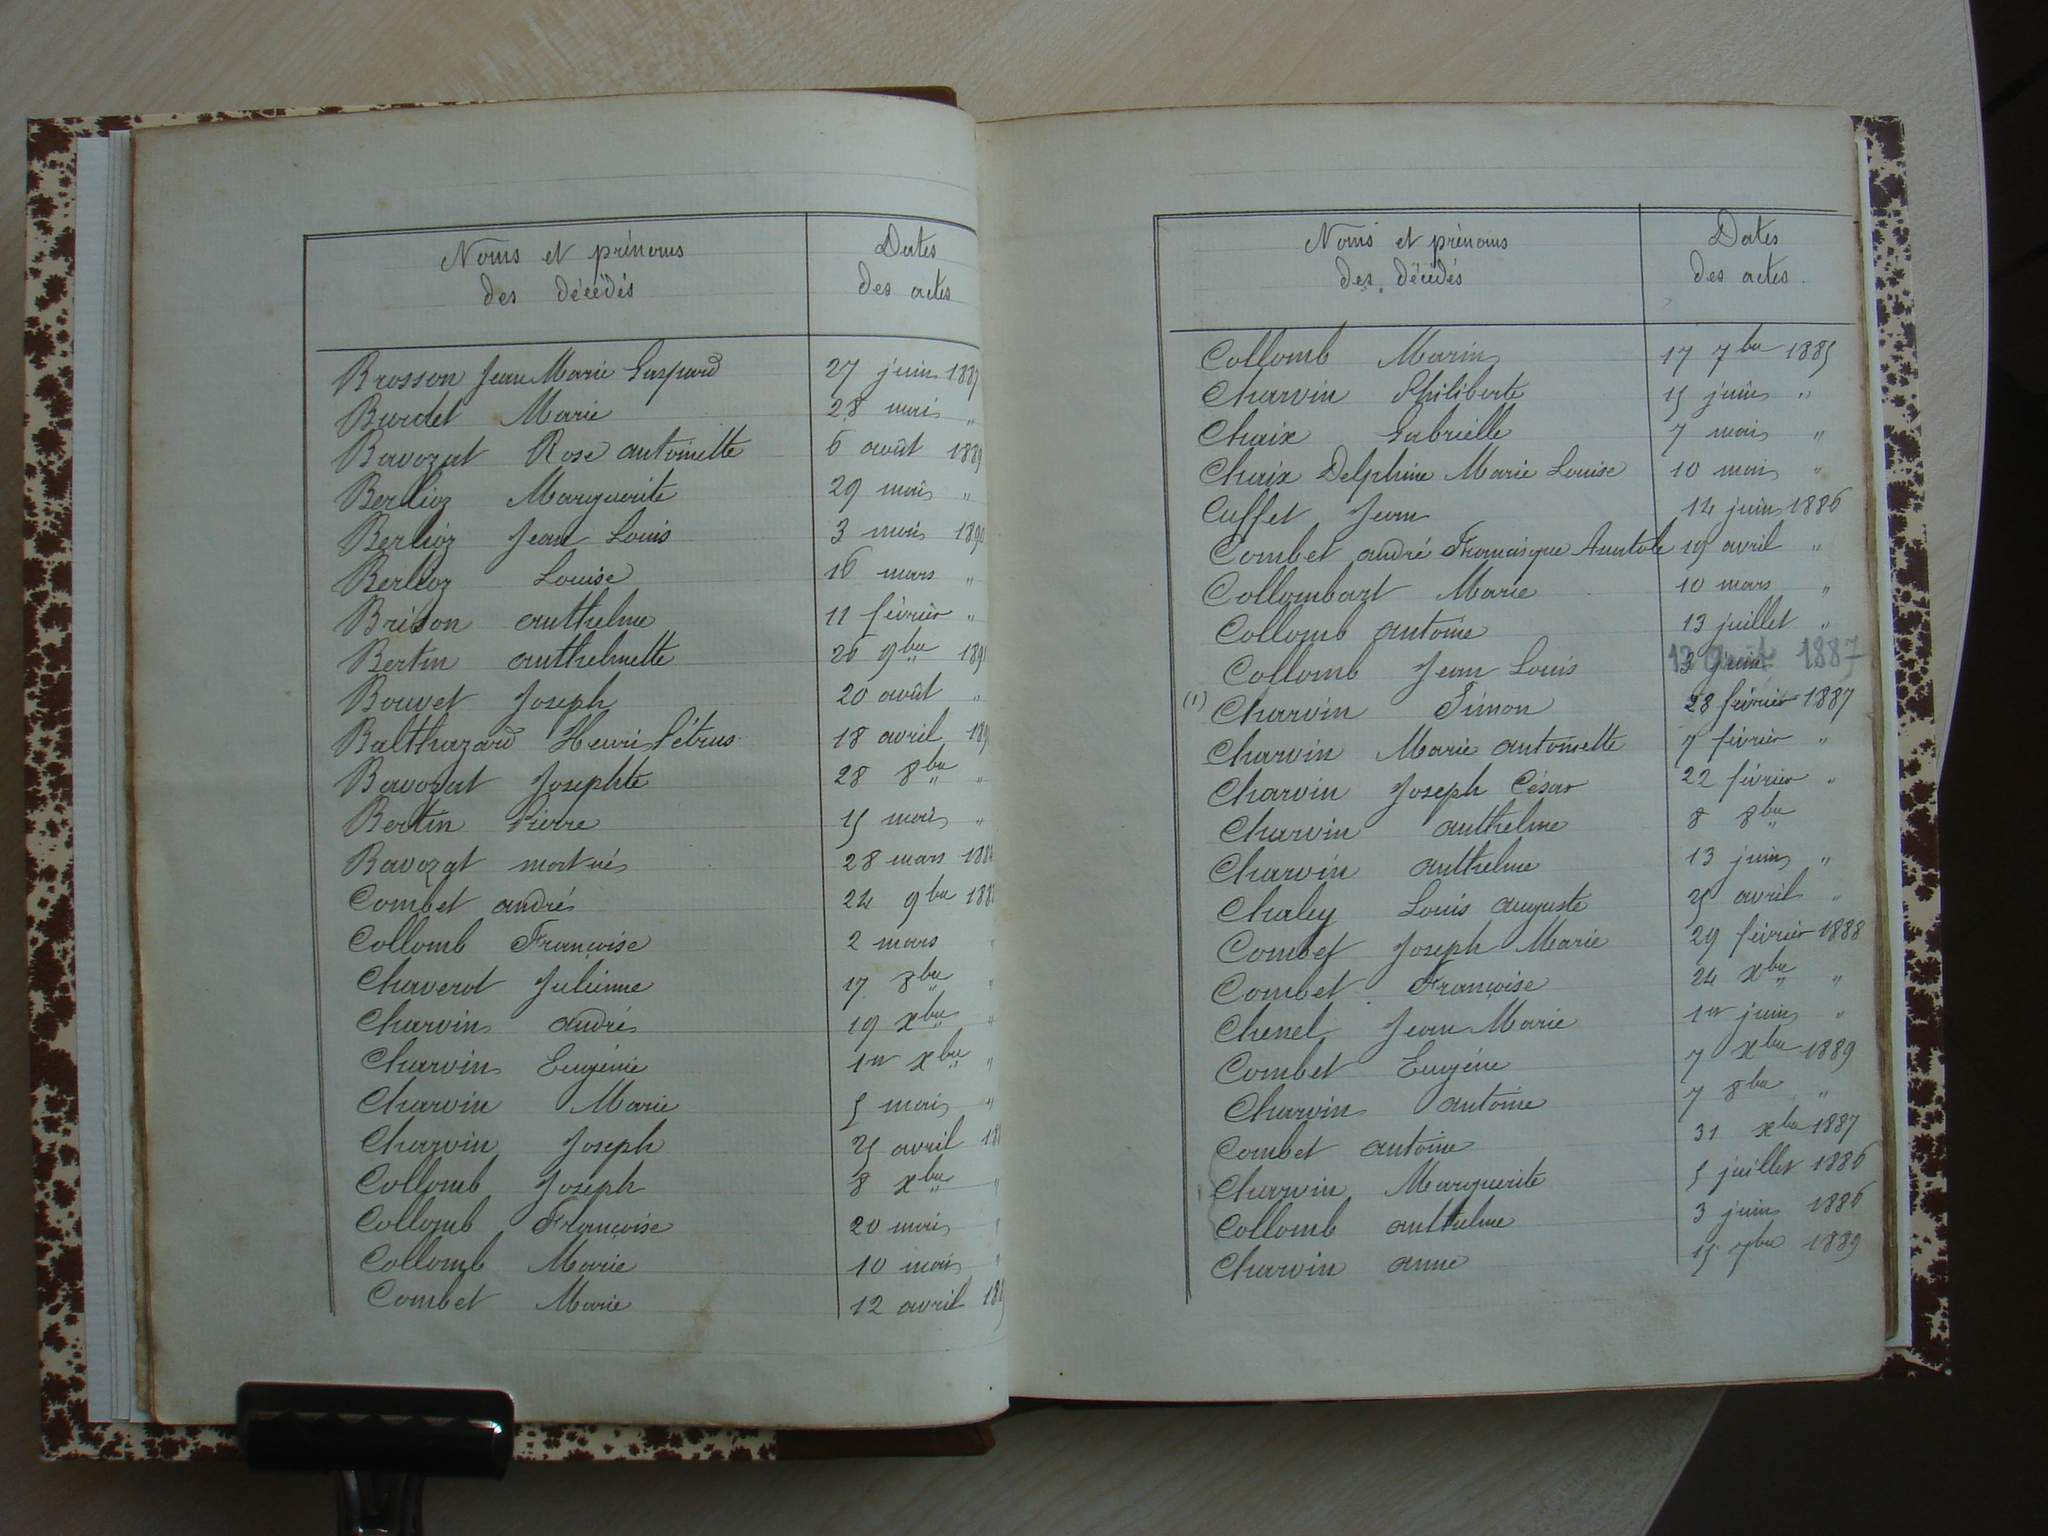 Noms et prénoms
des décédés
Dates
des actes
Brosson Jean Marie Gaspard 27 juin 1887
Burdet Marie 28 mai "
Bavozat Rose antoinette 6 août 1889
Berlioz Marguerite 29 mai "
Berlioz Jean Louis 3 mai 1890
Berlioz Louise 16 mars "
Brison anthelme 11 février "
Bertin anthelmette 26 9bre 189
Bouvet Joseph 20 août "
Balthazard Henri Pétrus 18 avril 189
Bavozat Josephte 28 8bre "
Bertin Pierre 15 mai "
Bavozat mort-né 28 mars 188
Combet andré 24 9bre 188
Collomb Françoise 2 mars "
Chaverot Julienne 17 8bre "
Charvin andré 19 xbre "
Charvin Eugénie 1er xbre "
Charvin Marie 5 mai "
Charvin Joseph 25 avril 188
Collomb Joseph 8 xbre "
Collomb Françoise 20 mai "
Collomb Marie 10 mai "
Combet Marie 12 avril 188
Noms et prénoms
des décédés
Dates
des actes
Collomb Marin 17 7bre 1885
Charvin Philiberte 15 juin "
Chaix Gabrielle 7 mai "
Chaix Delphine Marie Louise 10 mai "
Cuffet Jean 14 juin 1886
Combet andré Francisque Anatole 19 avril "
Collombart Marie 10 mars "
Collomb antoine 13 juillet "
Collomb Jean Louis 1887
(1) Charvin Simon 28 février 1887
Charvin Marie antoinette 7 février "
Charvin Joseph César 22 février "
Charvin anthelme 8 8bre
Charvin anthelme 13 juin "
Chaley Louis auguste 25 avril "
Combet Joseph Marie 29 février 1888
Combet Françoise 24 xbre "
Chenel Jean Marie 1er juin "
Combet Eugène 7 xbre 1889
Charvin antoine 7 8bre "
Combet antoine 31 xbre 1887
Charvin Marguerite 5 juillet 1886
Collomb anthelme 3 juin 1886
Charvin anne 15 7bre 1889